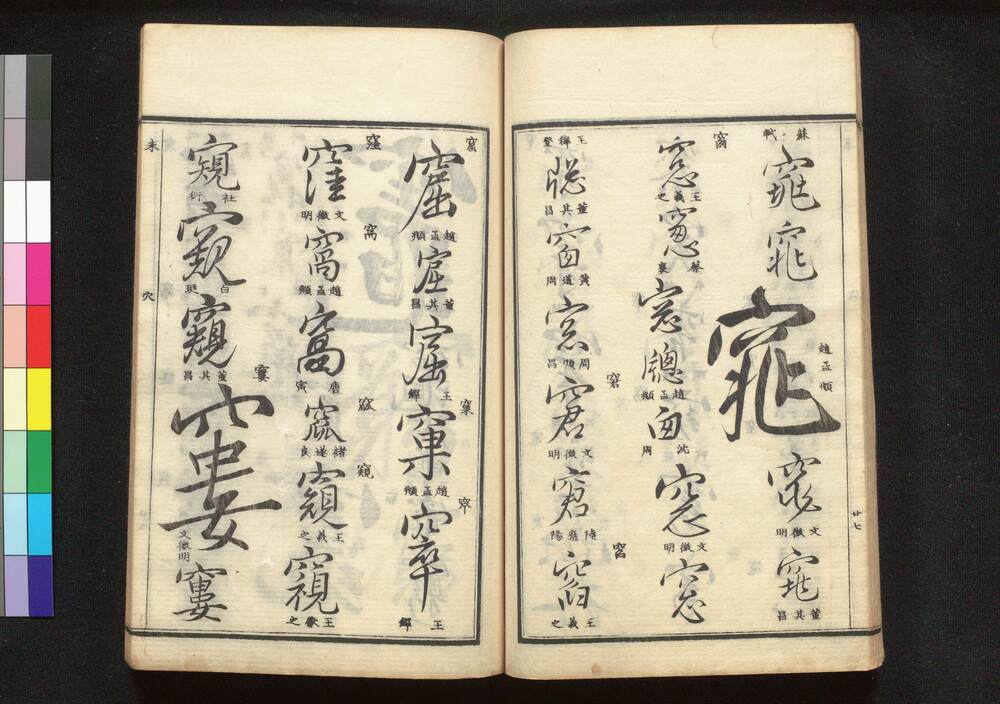 蘇軾
窕
窕
窕
趙孟頫
窕
文徵明
窕
董其昌
廿七
窗
窓
王羲之
窻
蔡襄
窓
牕
趙孟頫
囱
沈周
窓
文徵明
窓
王穉登
牎
董其昌
窗
黄道周
窓
周順昌
窘
窘
文徵明
窘
窞
窞
王羲之
窟
窟
趙孟頫
窟
董其昌
窟
王鐸
窠
窠
趙孟頫
窣
窣
王鐸
窪
窪
文徵明
窩
窩
趙孟頫
窩
唐寅
褚遂良
窺
窺
王羲之
窺
王獻之
窺
杜衍
窺
窺
董其昌
窶
窶
文徵明
窶
未
穴